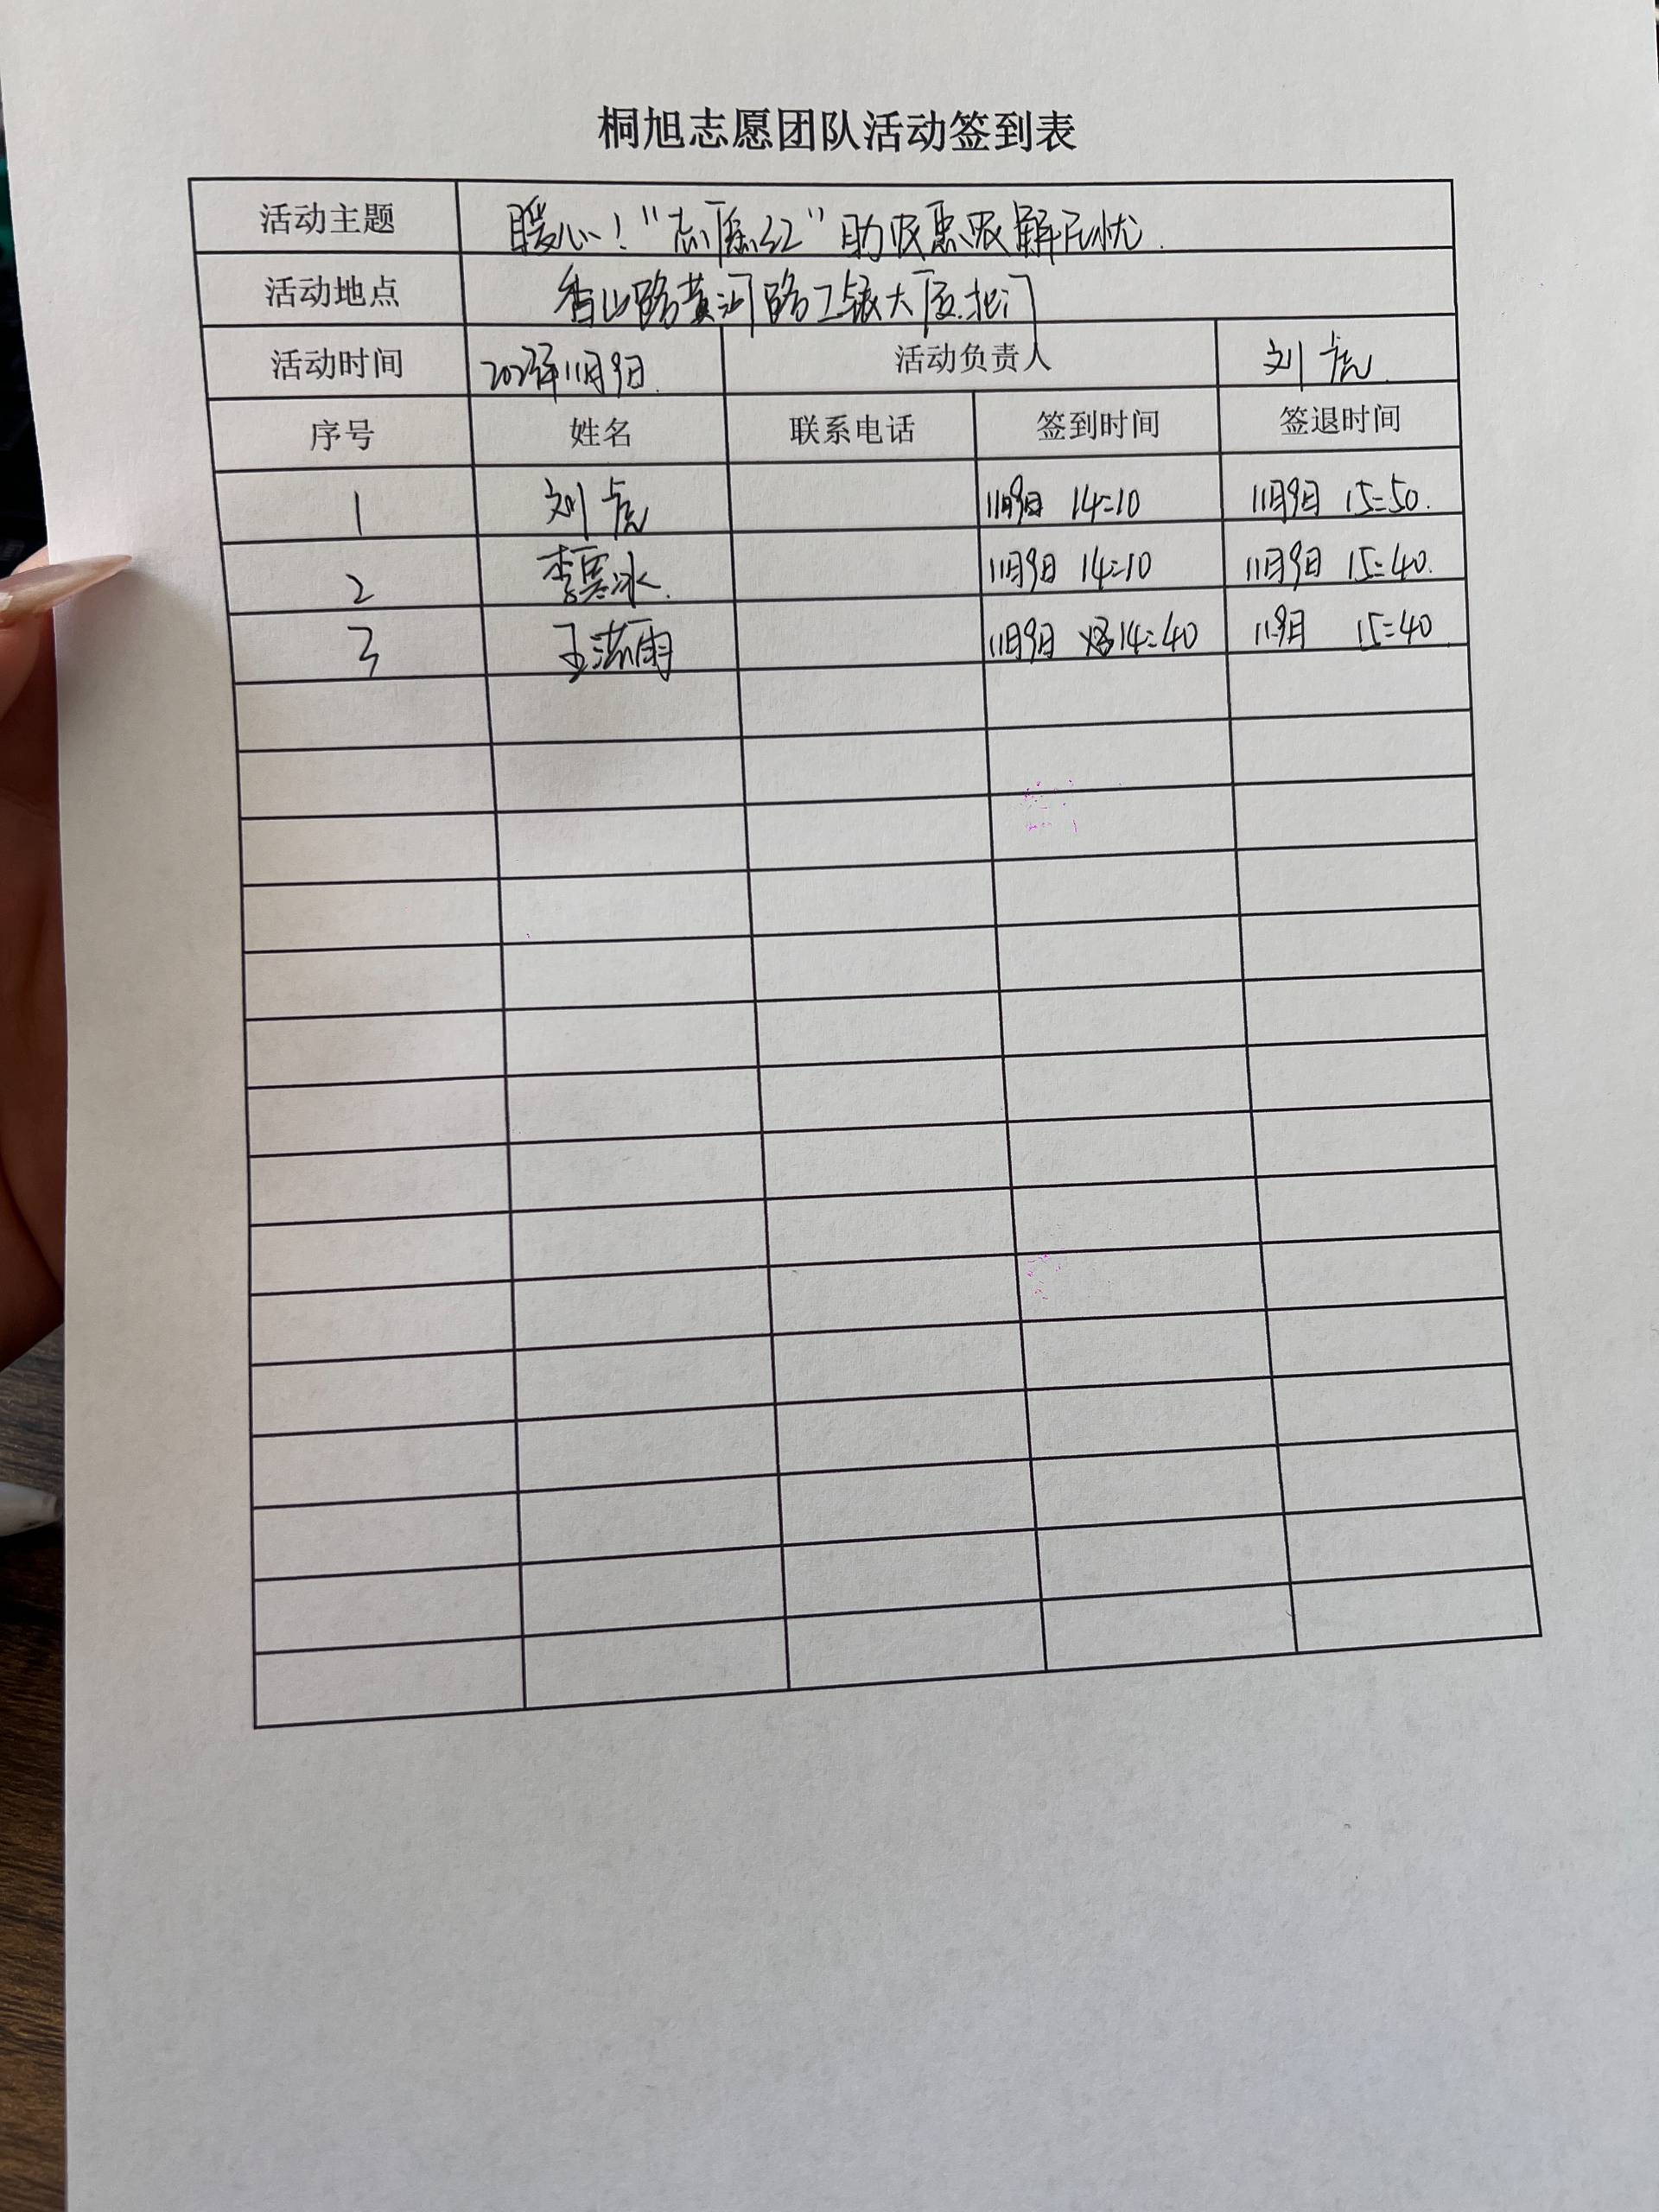 桐旭志愿团队活动签到表
活动主题 暖心！“志愿红”助农惠农解民忧.
活动地点 香山路黄河路工银大厦北门
活动时间 11月9日. 活动负责人 刘虎.
序号 姓名 联系电话 签到时间 签退时间
1 刘虎 11月9日 14:10 11月9日 15:50.
2 李寒冰. 11月9日 14:10 11月9日 15:40.
3 王 雨 11月9日 14:40 11.9月 15:40